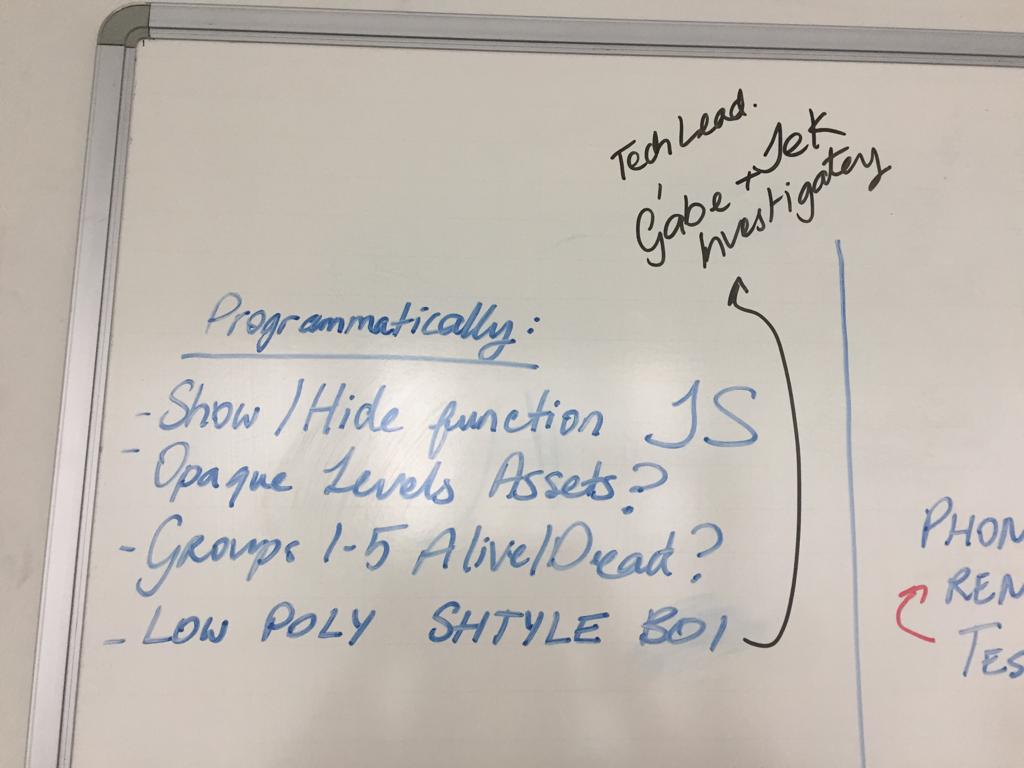 Tech Lead.
Gabe + Jek
Investigatey
Programmatically:
- Show / Hide function JS
- Opaque Levels Assets?
- Groups 1-5 Alive/Dread?
- LOW POLY SHTYLE BOI
PHON
REN
TES